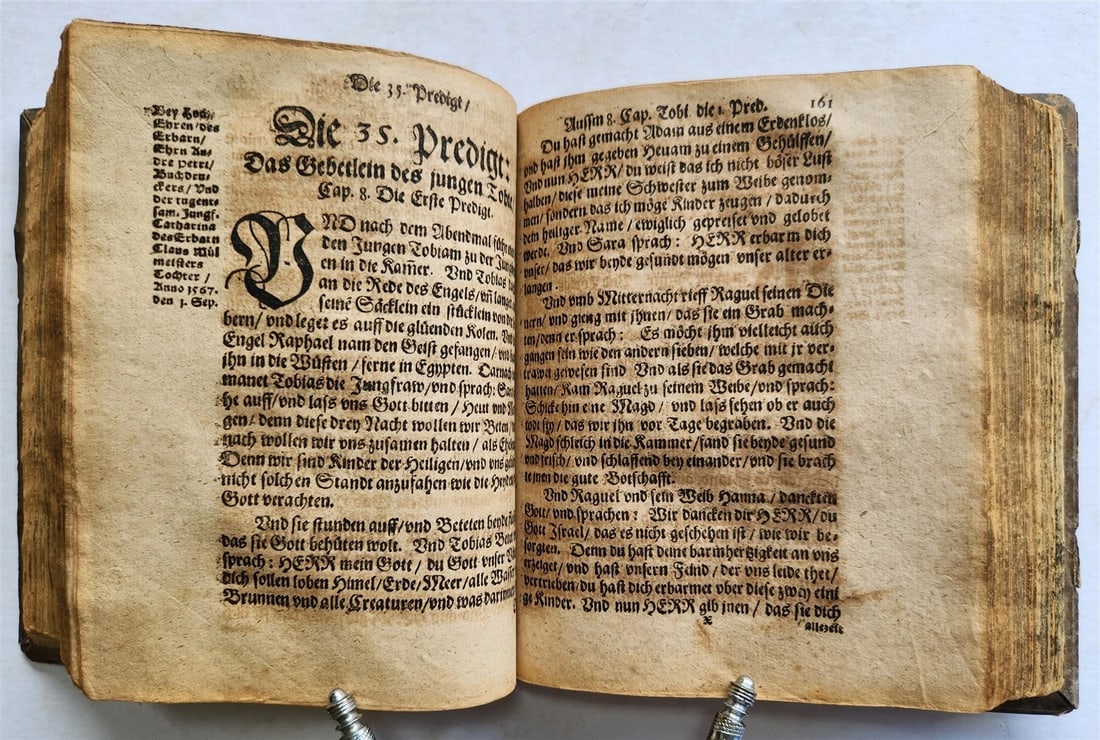 Die 35. Predigt/
Bey Hoch-
Ehren/des
Erbarn/
Ehrn An-
dre Petri/
Buchdru-
ckers/ Vnd
der tugent-
sam. Jungf.
Catharina
des Erbarn
Claus Mül
meisters
Tochter/
Anno 1567.
den 1. Sep.
Die 35. Predigt:
Das Gebetlein des jungen Tobie
Cap. 8. Die Erste Predigt.
VND nach dem Abendmal
den Jungen Tobiam zu der
en in die Kam̃er. Vnd Tobias
an die Rede des Engels/ vñ langet
seine Säcklein ein stücklein von der
bern/ vnd leget es auff die glüenden Kolen.
Engel Raphael nam den Geist gefangen/
ihn in die Wüsten/ ferne in Egypten. Darnach
manet Tobias die Jungfraw/vnd sprach:
he auff/vnd lass vns Gott bitten/ Heut vnd
gen/ denn diese drey Nacht wollen wir Beten/
nach wollen wir vns zusamen halten/ als
Denn wir sind Kinder der Heiligen/ vnd vns
nicht solchen Standt anzufahen wie die Heyden
Gott verachten.
Vnd sie stunden auff/vnd Beteten beyde
das sie Gott behüten wolt. Vnd Tobias
sprach: HERR mein Gott/ du Gott vnser
dich sollen loben Himel/Erde/Meer/alle
Brunnen vnd alle Creaturen/vnd was
Aussm 8. Cap. Tobi. die 1. Pred. 161
Du hast gemacht Adam aus einem Erdenklos/
vnd hast ihm gegeben Heuam zu einem Gehülffen/
Vnd nun HERR/ du weist das ich nicht böser Lust
halben/ diese meine Schwester zum Weibe genom-
men/ sondern das ich möge Kinder zeugen/ dadurch
dein heiliger Name/ ewiglich gepreiset vnd gelobet
werde. Vnd Sara sprach: HERR erbarm dich
vnser/ das wir beyde gesundt mögen vnser alter er-
langen.
Vnd vmb Mitternacht rieff Raguel seinen Die
nern/ vnd gieng mit jhnen/ das sie ein Grab mach-
ten/ denn er sprach: Es möcht ihm vielleicht auch
gangen sein wie den andern sieben/ welche mit jr ver-
trawt gewesen sind. Vnd als sie das Grab gemacht
hatten/ Kam Raguel zu seinem Weibe/ vnd sprach:
Schicke hin eine Magd/ vnd lass sehen ob er auch
todt sey/ das wir ihn vor Tage begraben. Vnd die
Magd schleich in die Kammer/ fand sie beyde gesund
vnd frisch/ vnd schlaffend bey einander/ vnd sie brach
te jnen die gute Botschafft.
Vnd Raguel vnd sein Weib Hanna/ danckten
Gott/ vnd sprachen: Wir dancken dir HERR/ du
Gott Israel/ das es nicht geschehen ist/ wie wir be-
sorgten. Denn du hast deine barmhertzigkeit an vns
erzeiget/ vnd hast vnsern Feind/ der vns leide thet/
vertrieben/ du hast dich erbarmet vber diese zwey eini
ge Kinder. Vnd nun HERR gib jnen/ das sie dich
x
allezeit